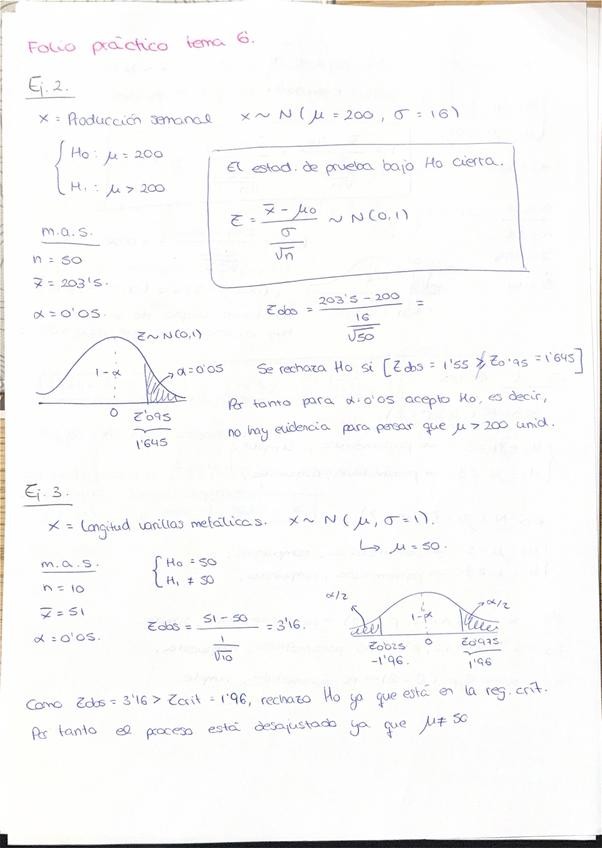 Folio práctico tema 6.
Ej. 2.
X = Producción semanal X ~ N ( μ = 200 , σ = 16 )
H0 : μ = 200
H1 : μ > 200
El estad. de prueba bajo Ho cierta.
Z = (x̄ - μ0) / (σ / √n) ~ N(0,1)
m.a.s.
n = 50
x̄ = 203'5.
α = 0'05.
Zobs = (203'5 - 200) / (16 / √50) =
Z ~ N(0,1)
1-α
α = 0'05
0
Z0'95
1'645
Se rechaza Ho si [ Zobs = 1'55 ≯ Z0'95 = 1'645 ]
Por tanto para α = 0'05 acepto Ho, es decir,
no hay evidencia para pensar que μ > 200 unid.
Ej. 3.
X = Longitud varillas metálicas. X ~ N ( μ, σ = 1 ).
↳ μ = 50.
m.a.s.
n = 10
x̄ = 51
α = 0'05.
Ho = 50
H1 ≠ 50
Zobs = (51 - 50) / (1 / √10) = 3'16.
α/2
1-α
α/2
Z0'025
-1'96.
0
Z0'975
1'96
Como Zobs = 3'16 > Zcrit = 1'96, rechazo Ho ya que está en la reg. crít.
Por tanto el proceso está desajustado ya que μ ≠ 50